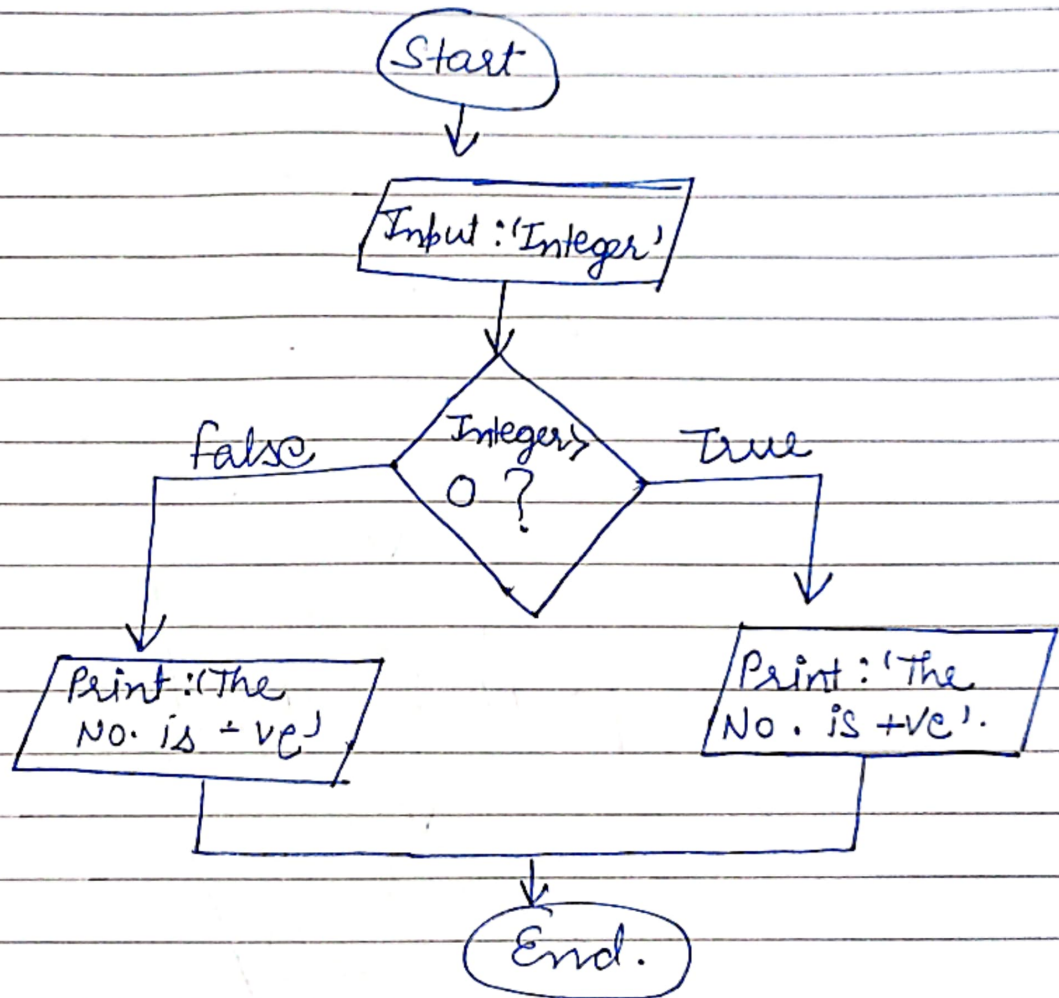 Start
Input : 'Integer'
Integer >
0 ?
false
True
Print : 'The
No. is -ve'
Print : 'The
No. is +ve'.
End.